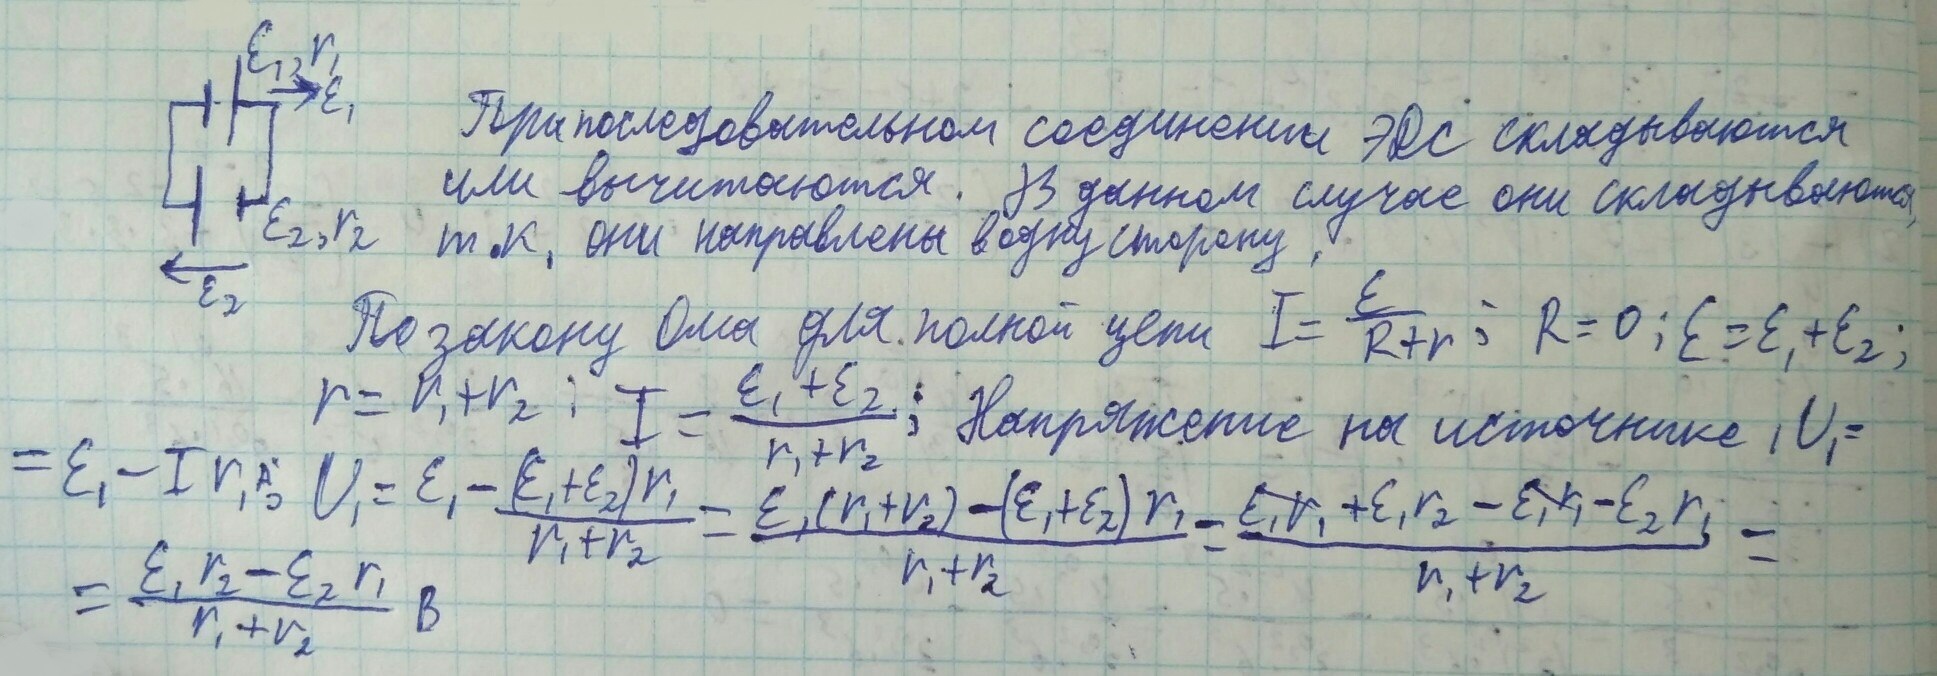 ε₁, r₁
ε₁
При последовательном соединении ЭДС складываются
или вычитаются. В данном случае они складываются,
ε₂, r₂
т.к. они направлены в одну сторону.
ε₂
По закону Ома для полной цепи I = ε/(R+r); R = 0; ε = ε₁+ε₂;
r = r₁+r₂; I = (ε₁+ε₂)/(r₁+r₂); Напряжение на источнике 1 U₁ =
= ε₁ − I r₁; U₁ = ε₁ − (ε₁+ε₂)r₁/(r₁+r₂) = (ε₁(r₁+r₂) − (ε₁+ε₂)r₁)/(r₁+r₂) = (ε₁r₁ + ε₁r₂ − ε₁r₁ − ε₂r₁)/(r₁+r₂) =
= (ε₁r₂ − ε₂r₁)/(r₁+r₂) В